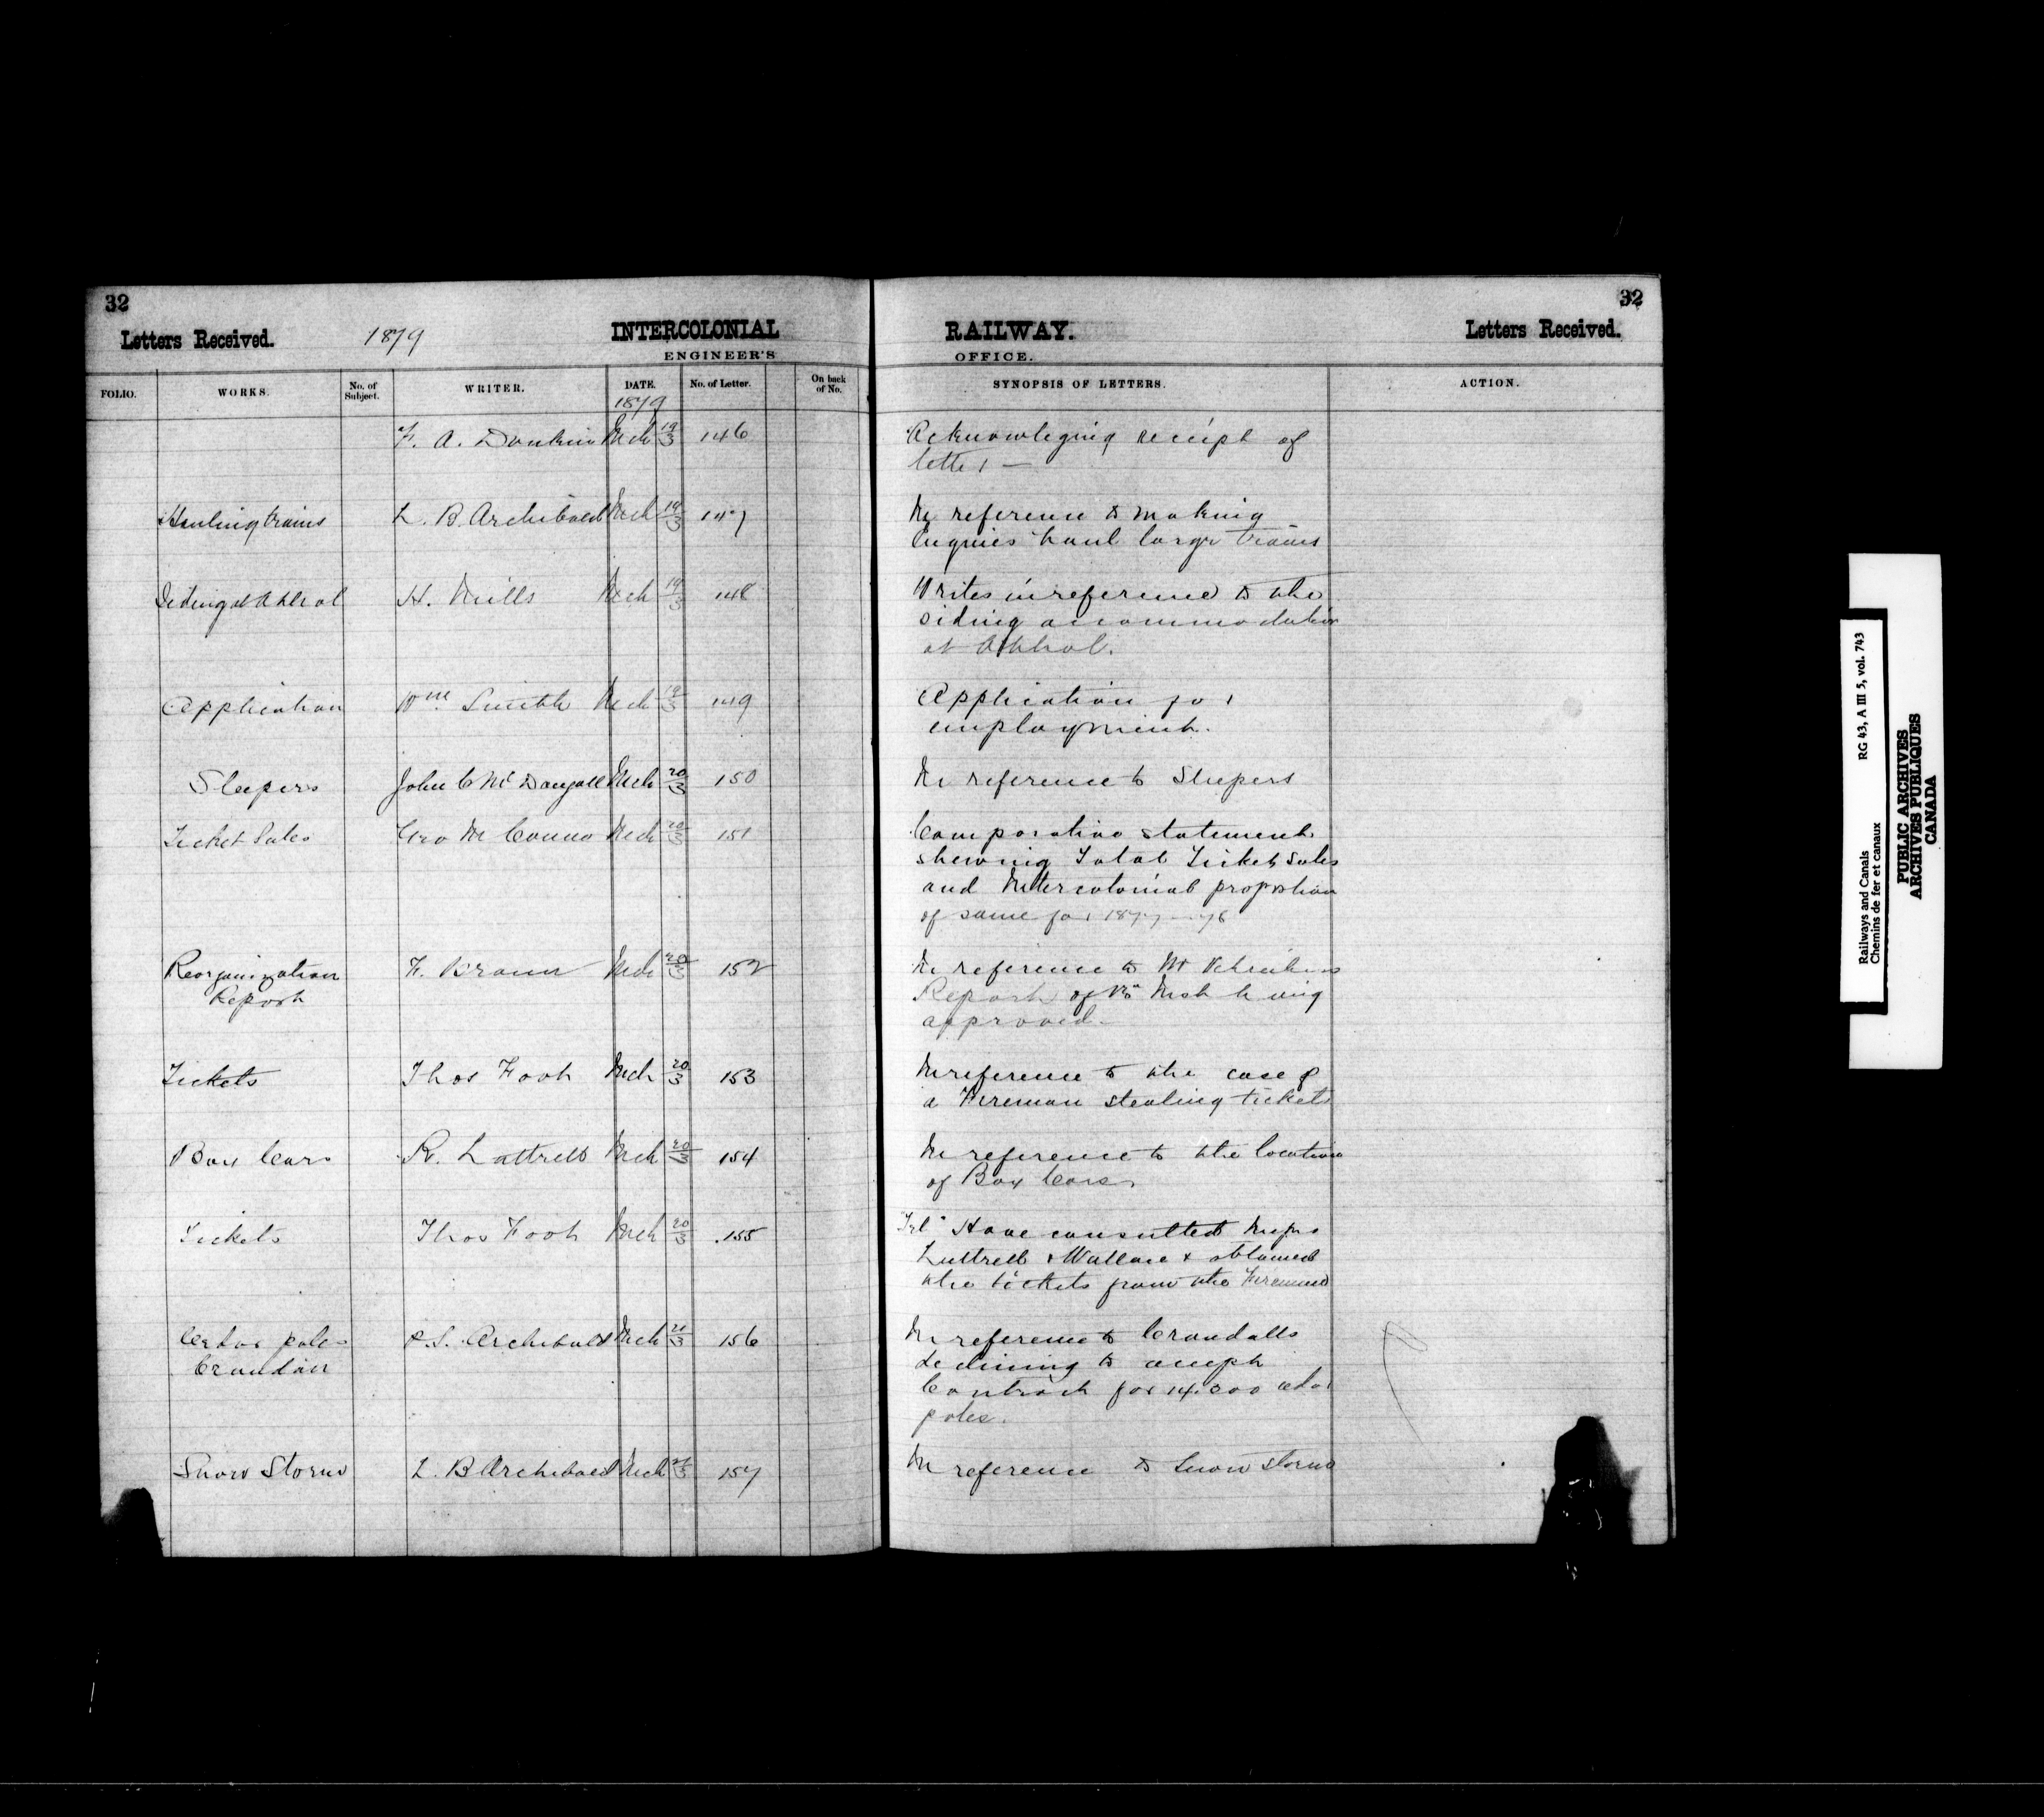 32
32
Letters Received.
1879
INTERCOLONIAL
RAILWAY.
Letters Received.
ENGINEER'S
OFFICE.
FOLIO.
WORKS.
No. of Subject.
WRITER.
DATE.
No. of Letter.
On back of No.
SYNOPSIS OF LETTERS.
ACTION.
1879
F. A. Donkin Mch 19/3 146 Acknowleging receipt of
letter —
Hauling trains L. B. Archibald Mch 19/3 147 In reference to making
Engines haul larger trains
Siding at Athol H. Mills Mch 19/3 148 Writes in reference to the
siding accommodation
at Athol.
Application Wm. Smith Mch 19/3 149 Application for
employment.
Sleepers John C McDougall Mch 20/3 150 In reference to Sleepers
Ticket Sales Geo M Mch 20/3 151 Comparative statement
shewing Total Ticket Sales
and Intercolonial proportion
of same for 1877-78
Reorganization F. Braun Mch 20/3 152 In reference to Mr Schreibers
Report
Report of Mch being
approved.
Tickets Thos Foot Mch 20/3 153 In reference to the case of
a Fireman stealing tickets
Box Cars R. Luttrell Mch 20/3 154 In reference to the location
of Box Cars
Tickets Thos Foot Mch 20/3 155 "Tel" Have consulted Messrs
Luttrell & Wallace & obtained
the tickets from the Fireman
Cedar poles P.S. Archibald Mch 21/3 156 In reference to Crandalls
Crandall
declining to accept
Contract for 14.000 cedar
poles.
Snow Storm L. B Archibald Mch 21/3 157 In reference to Snow storm
Railways and Canals RG 43, A III 5, vol. 743
Chemins de fer et canaux
PUBLIC ARCHIVES
ARCHIVES PUBLIQUES
CANADA